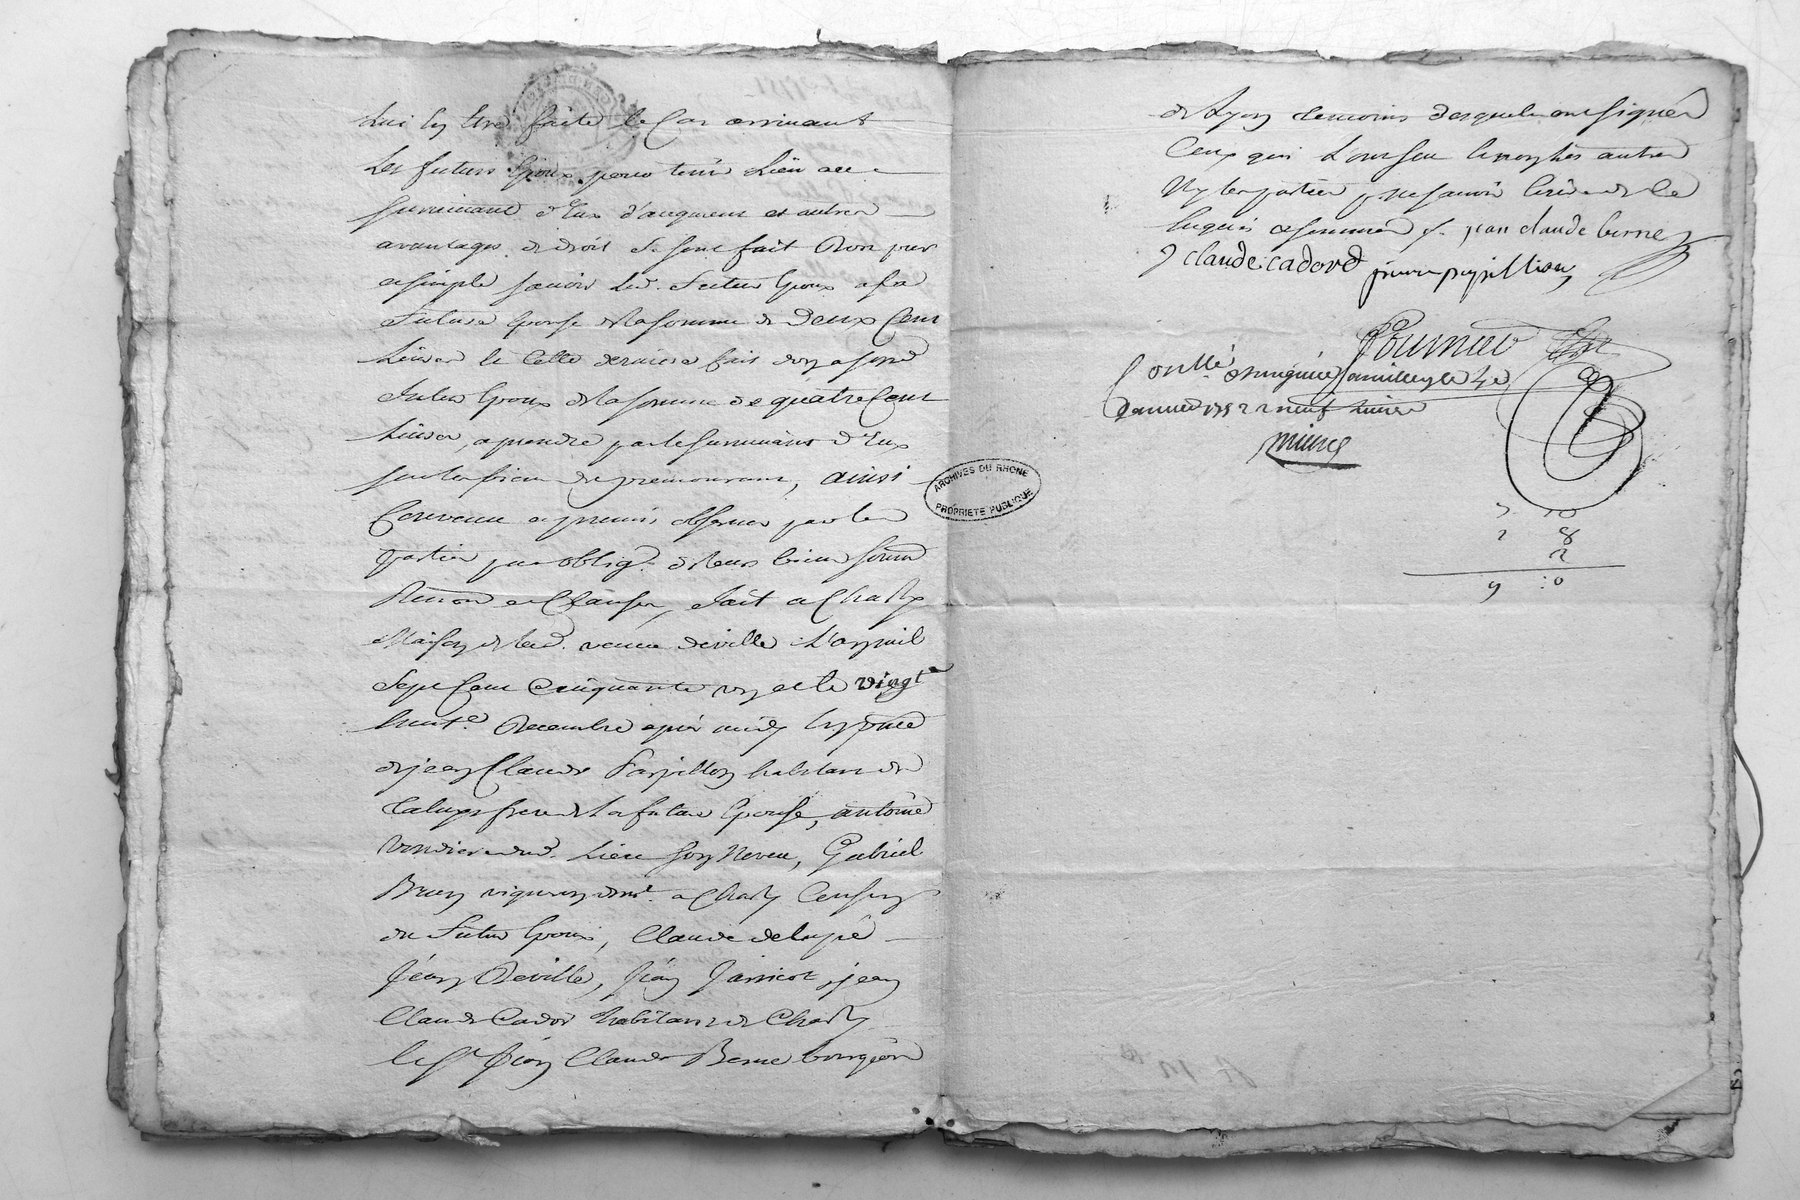 Lui en être faite le Cas arrivant
Les futurs Epoux pour tenir Lieu au
survivant d'Eux d'augment et autres
avantages de droit se sont fait Don pur
et simple sçavoir led. futur Epoux a sa
future Epouse de la somme de Deux Cent
Livres et Cette derniere fait don a son d.
futur Epoux de la somme de quatre Cent
Livres, a prendre par le survivant d'Eux
sur les biens du premourant, ainsi
Convenu et promis observer par les
parties par oblig. de leurs biens soum
Renon et Clauses, fait a Charly
Maison de lad. veuve Deville L'an mil
Sept Cent Cinquante un et le vingt
huit.e Decembre après midy En p̃nce
de jean Claude Papillon habitant de
Taluyer frere de La future Epouse, antoine
dud. Lieu son Neveu, Gabriel
Brun vigneron dem.t a Charly Cousin
du futur Epoux, Claude
Jean Deville, jean Jarricot, jean
Claude Cador habitans de Charly
le Sr Jean Claude Berne bourgeois
de Lyon temoins Desquels ont signé
Ceux qui L'ont sçu Les autres
Ny les parties p. ne sçavoir Ecrire de Ce
Enquis et sommés /. jean claude berne
J claude cadord pierre papillion
Fournier
Con.llé a St Genis Laval le 4e
Janvier 1752 r neuf livres
ARCHIVES DU RHONE
PROPRIETE PUBLIQUE
8
2